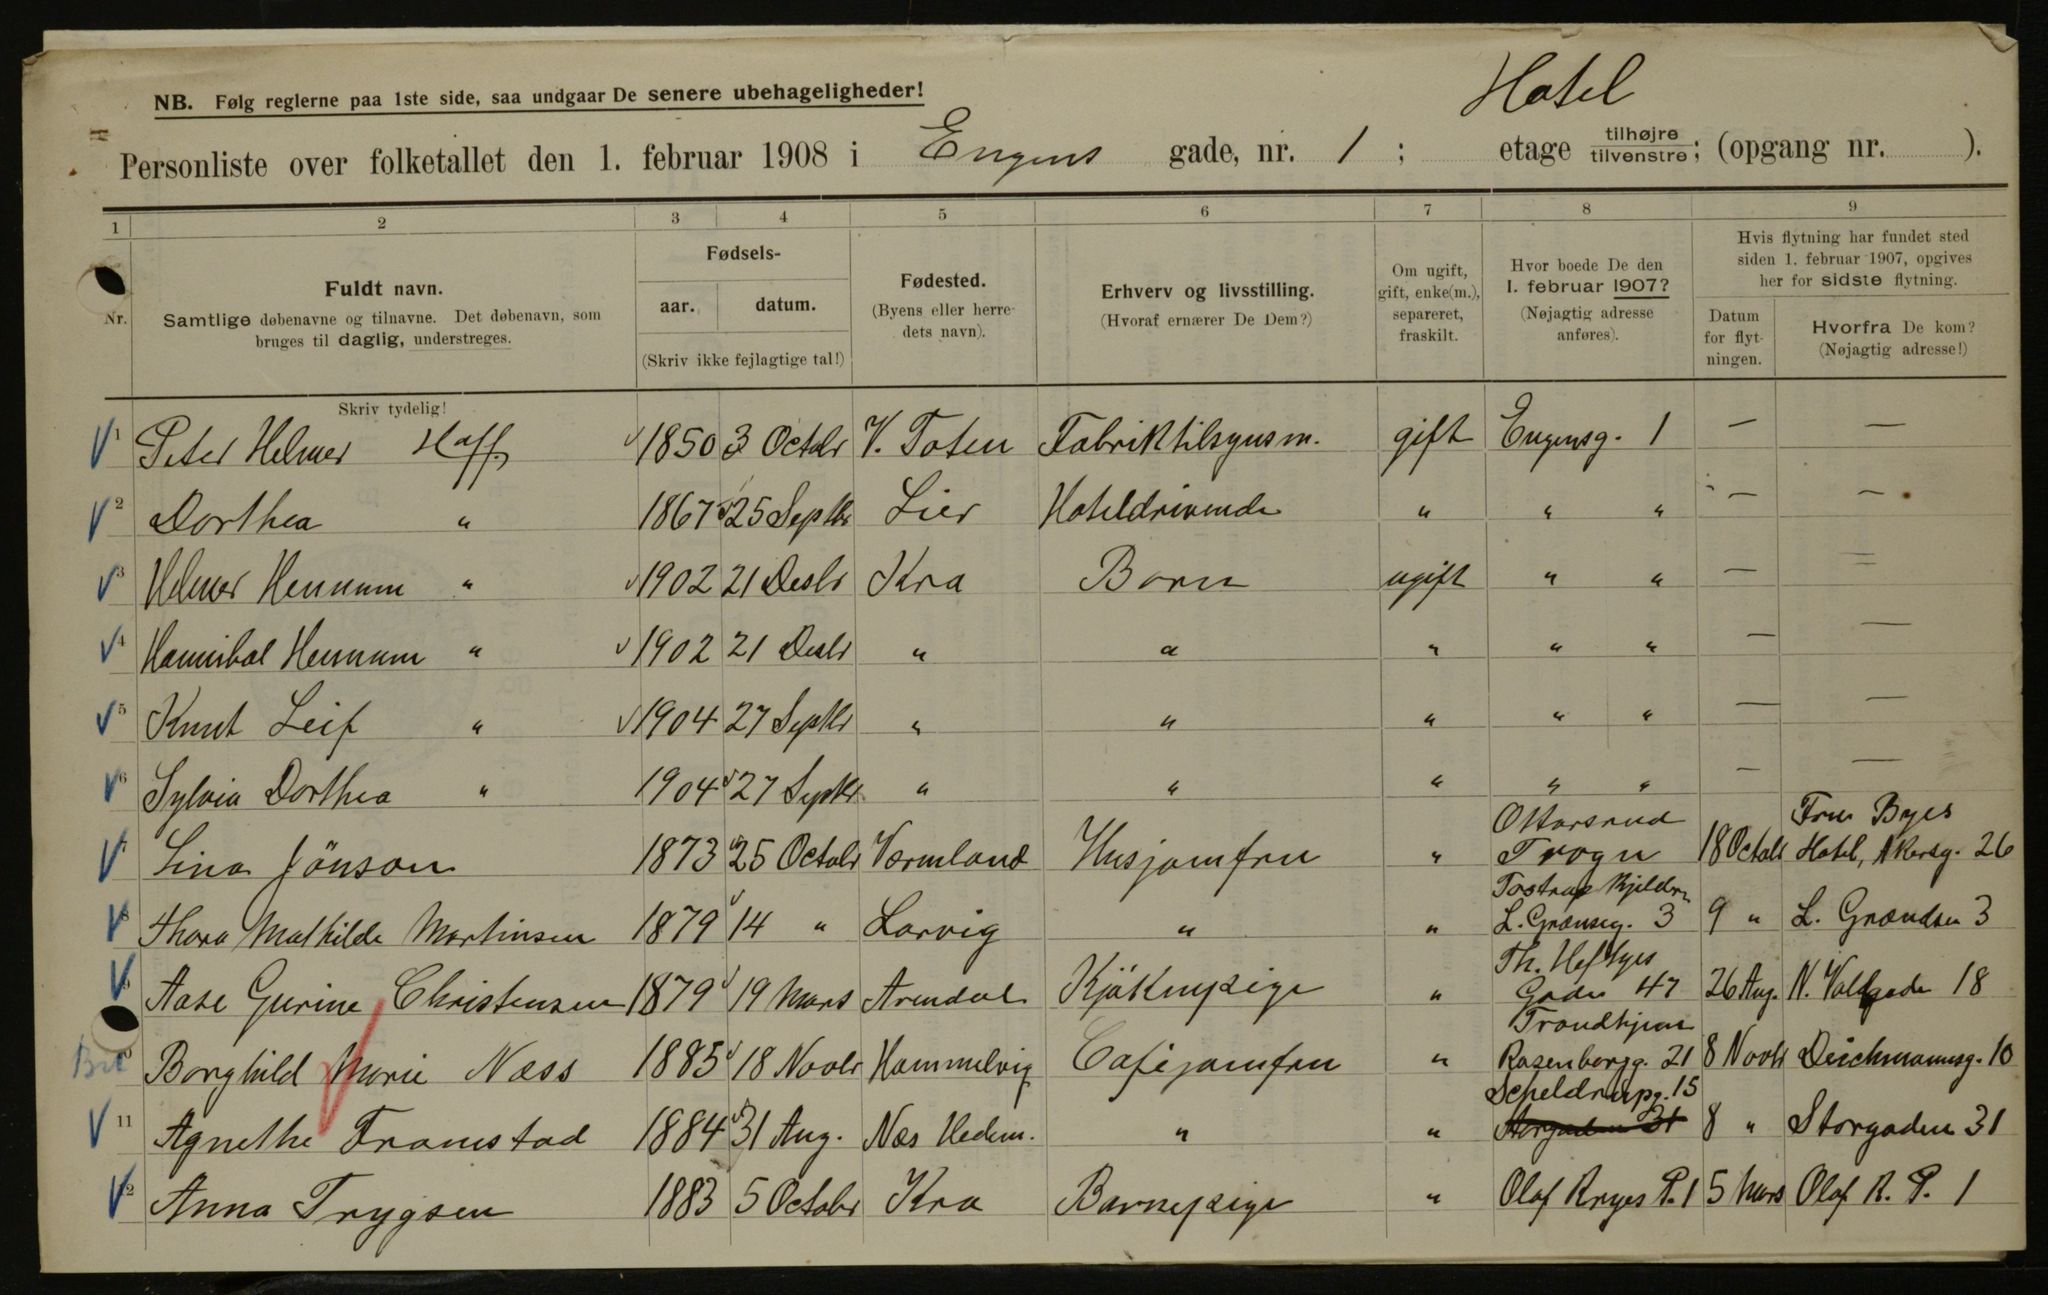 Hotel
NB. Følg reglerne paa 1ste side, saa undgaar De senere ubehageligheder!
Personliste over folketallet den 1. februar 1908 i Engens gade, nr. 1 ; etage tilhøjre tilvenstre; (opgang nr. ).
1 2 3 4 5 6 7 8 9
Nr.
Fuldt navn.
Samtlige døbenavne og tilnavne. Det døbenavn, som
bruges til daglig, understreges.
Skriv tydelig!
Fødsels-
aar. datum.
(Skriv ikke fejlagtige tal!)
Fødested.
(Byens eller herre-
dets navn).
Erhverv og livsstilling.
(Hvoraf ernærer De Dem?)
Om ugift,
gift, enke(m.),
separeret,
fraskilt.
Hvor boede De den
1. februar 1907?
(Nøjagtig adresse
anføres).
Hvis flytning har fundet sted
siden 1. februar 1907, opgives
her for sidste flytning.
Datum
for flyt-
ningen.
Hvorfra De kom?
(Nøjagtig adresse!)
1 Peter Helmer Hoff 1850 3 Octobr V. Toten Fabriktilsynsm. gift Engensg. 1 — —
2 Dorthea " 1867 25 Septbr Lier Hoteldrivende " " " — —
3 Helmer Hennum " 1902 21 Desbr Kra Barn ugift " " — —
4 Hannibal Hennum " 1902 21 Desbr " " " " " — —
5 Knut Leif " 1904 27 Septbr " " " " " — —
6 Sylvia Dorthea " 1904 27 Septbr " " " " " — —
Ottarsrud Fru Byes
7 Lina Jönson 1873 25 Octobr Værmland Husjomfru " Trogn 18 Octobr Hotel, Akersg. 26
Tostrup Kjelder
8 Thora Mathilde Martinsen 1879 14 " Larvig " " L. Grænseg. 3 9 " L. Grændsen 3
Th. Heftyes
9 Aase Gurine Christensen 1879 19 Mars Arendal Kjøkkenpige " Gade 47 26 Aug. N. Voldgade 18
Trondhjem
10 Borghild Marie Næss 1885 18 Novbr Hommelvig Cafejomfru " Rosenborgg. 21 8 Novbr Deichmannsg. 10
Scheldrupg. 15
11 Agnethe Framstad 1884 31 Aug. Næs Hedem. " " Storgaden 31 8 " Storgaden 31
12 Anna Trygsen 1883 5 Octobr Kra Barnepige " Olaf Ryes P. 1 5 Mars Olaf R. P. 1